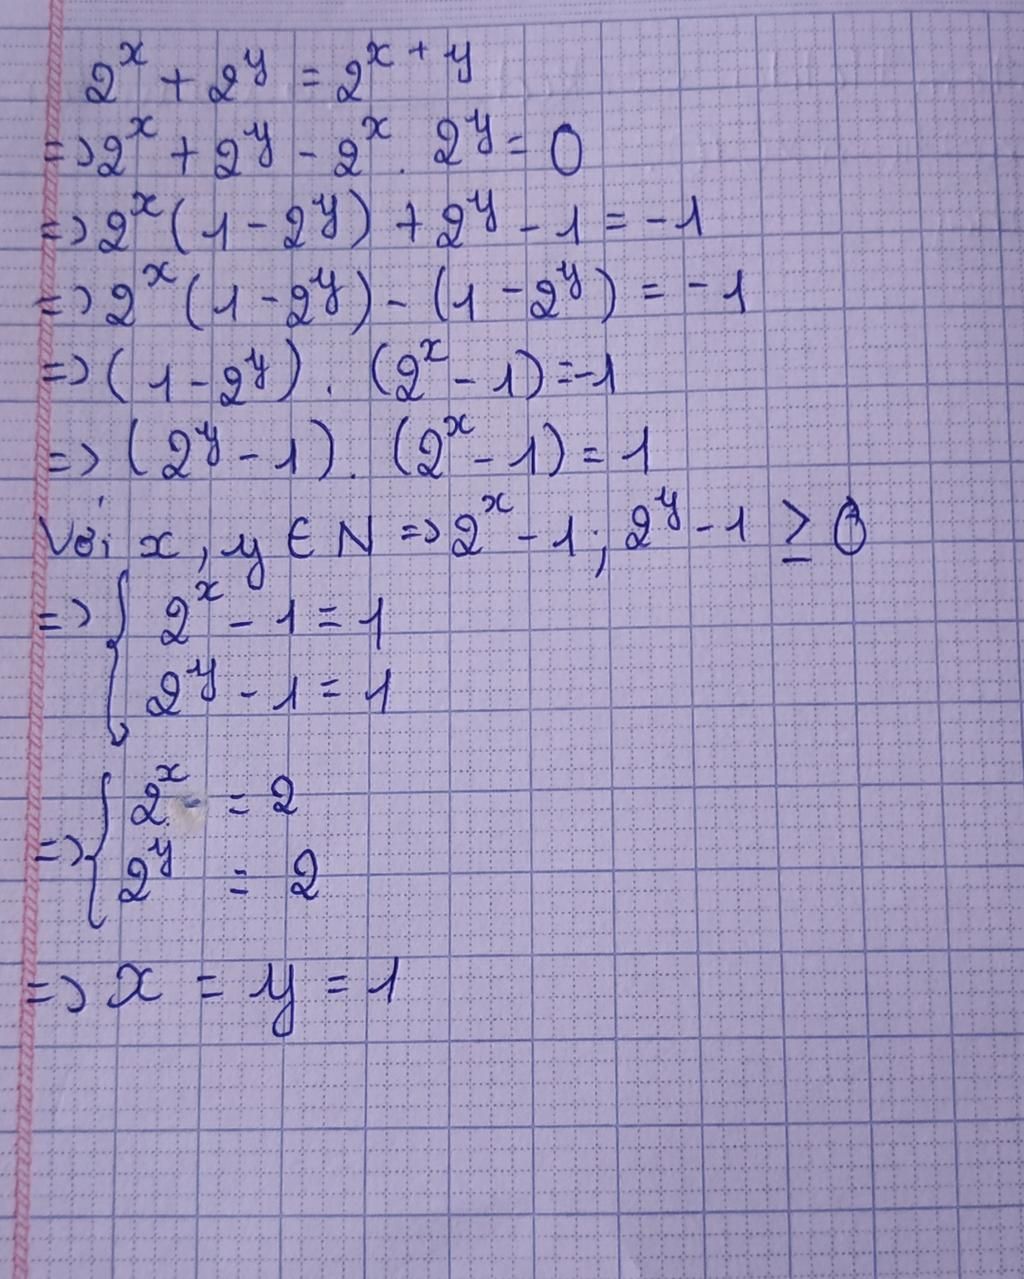 2^x + 2^y = 2^{x+y}
=> 2^x + 2^y - 2^x . 2^y = 0
=> 2^x (1 - 2^y) + 2^y - 1 = -1
=> 2^x (1 - 2^y) - (1 - 2^y) = -1
=> (1 - 2^y) . (2^x - 1) = -1
=> (2^y - 1) . (2^x - 1) = 1
Với x, y ∈ N => 2^x - 1 ; 2^y - 1 ≥ 0
=> { 2^x - 1 = 1
2^y - 1 = 1
=> { 2^x = 2
2^y = 2
=> x = y = 1